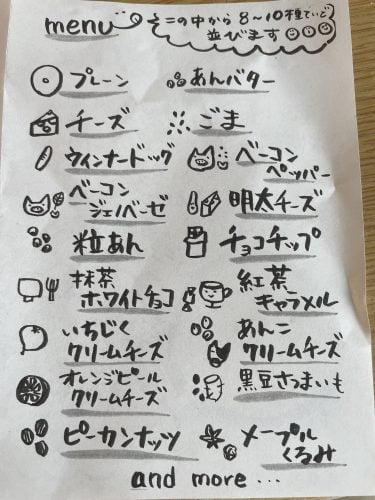 menu
この中から8〜10種ていど
並びます
プレーン
あんバター
チーズ
ごま
ウィンナードッグ
ベーコン
ペッパー
ベーコン
ジェノベーゼ
明太チーズ
粒あん
チョコチップ
抹茶
ホワイトチョコ
紅茶
キャラメル
いちじく
クリームチーズ
あんこ
クリームチーズ
オレンジピール
クリームチーズ
黒豆さつまいも
ピーカンナッツ
メープル
くるみ
and more ...